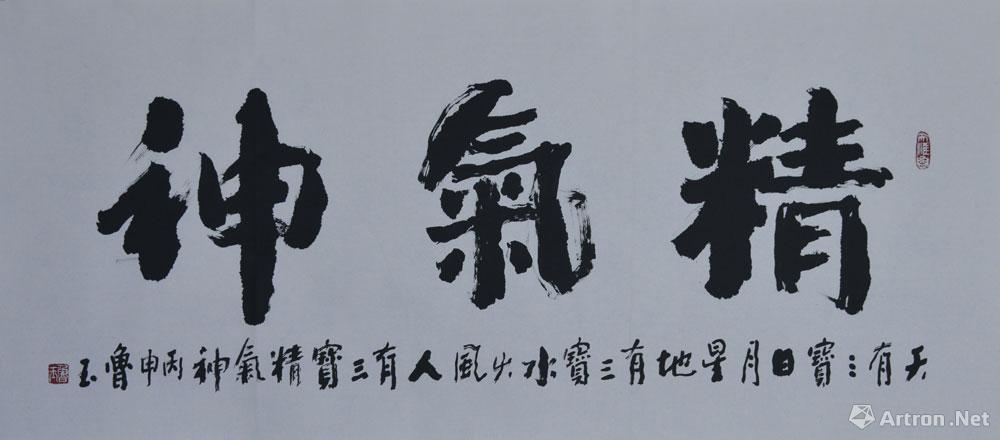 精氣神
天有三寶日月星地有三寶水火風人有三寶精氣神丙申魯玉
Artron.Net